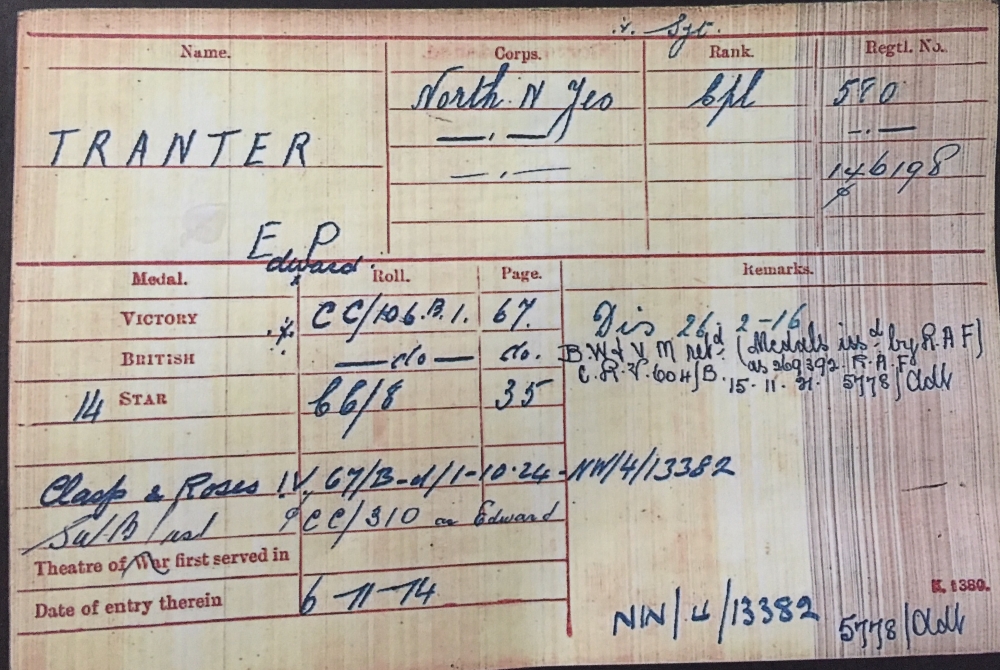 x. Sgt.
Name. Corps. Rank. Regtl. No.
North. N Yeo Cpl 590
TRANTER — . — — . —
— . — 146198
E P
Edward
Medal. Roll. Page. Remarks.
VICTORY CC/106.B.1. 67. Dis 26 2-16
BRITISH — do — do. B.W & V M retd. (Medals issd. by R.A F)
as 269392 R.A.F.
C.R.V. 604/B. 15-11-21. 5778/Adt
14 STAR CC/8 35
Clasp & Roses IV 67/B-d/1-10-24-NW/4/13382
CC/310 as Edward
Theatre of War first served in
Date of entry therein 6-11-14
K. 1380.
NW/4/13382 5778/Adt